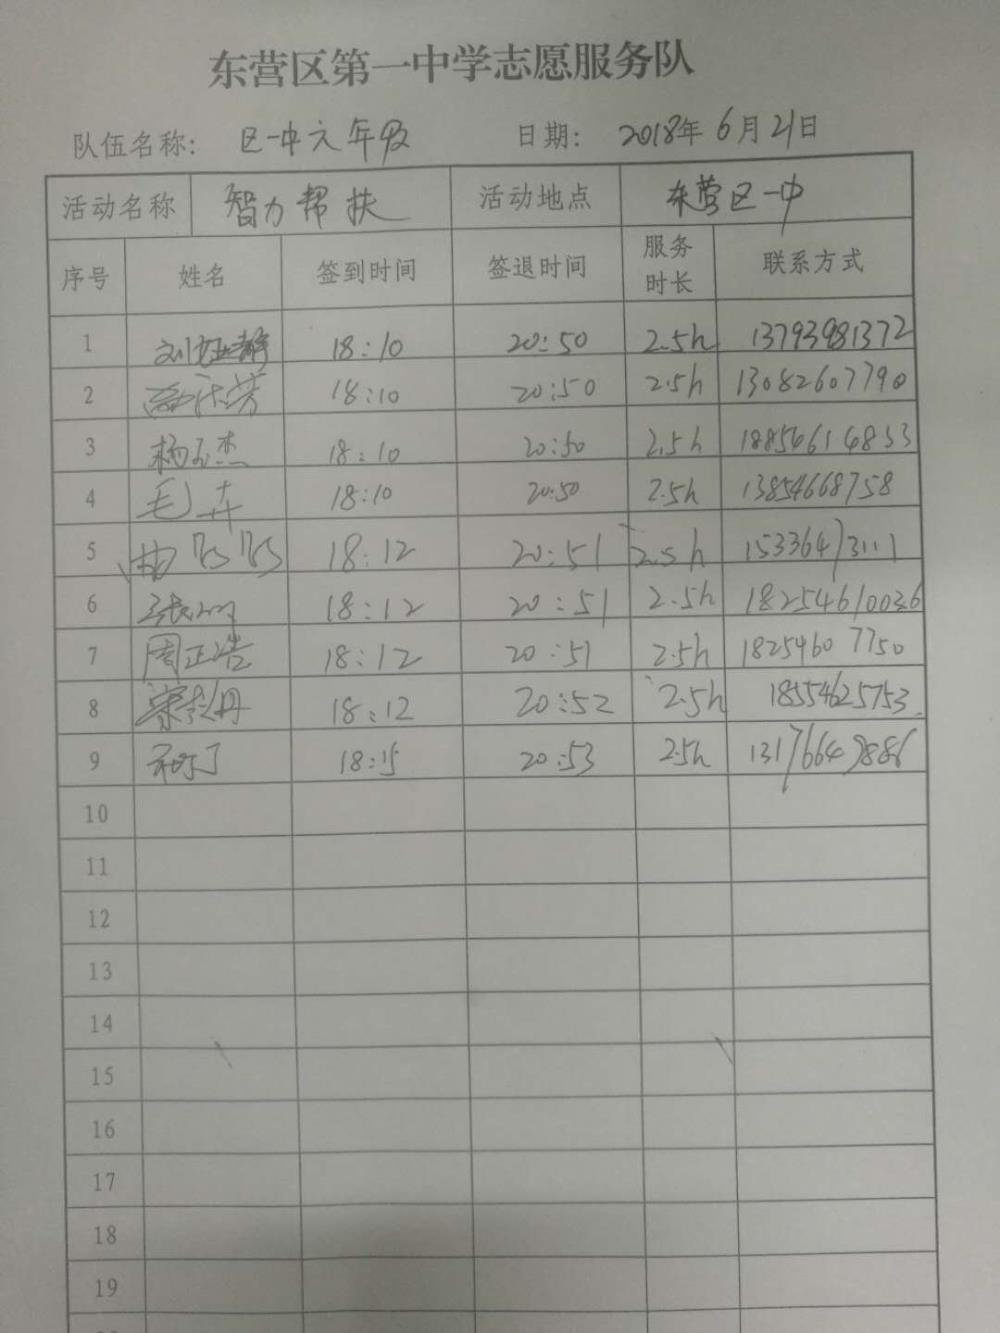 东营区第一中学志愿服务队
队伍名称: 区一中六年级 日期: 2018年6月21日
活动名称 智力帮扶 活动地点 东营区一中
序号 姓名 签到时间 签退时间 服务时长 联系方式
1 刘 静 18:10 20:50 2.5h 13793981372
2 芳 18:10 20:50 2.5h 13082607790
3 杨 杰 18:10 20:50 2.5h 18854614833
4 毛卉 18:10 20:50 2.5h 13854668758
5 18:12 20:51 2.5h 15336473111
6 张 18:12 20:51 2.5h 18254610036
7 周正浩 18:12 20:51 2.5h 18254607750
8 丹 18:12 20:52 2.5h 18554625753
9 18:15 20:53 2.5h 13176649886
10
11
12
13
14
15
16
17
18
19